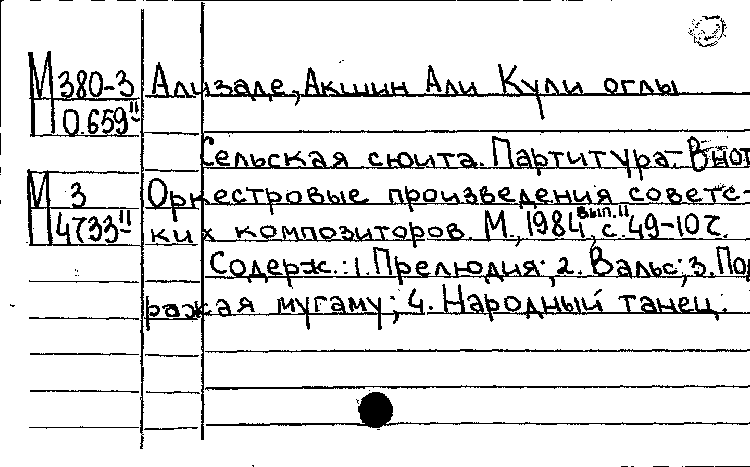 М 380-3 Ализаде, Акшин Али Кули оглы
П 0659 II
Сельская сюита. Партитура. В нот
М 3 Оркестровые произведения советс-
П 4733 II ких композиторов. М., 1984, вып. II, с. 49-107.
Содерж.: 1. Прелюдия; 2. Вальс; 3. Под
ражая мугаму; 4. Народный танец.